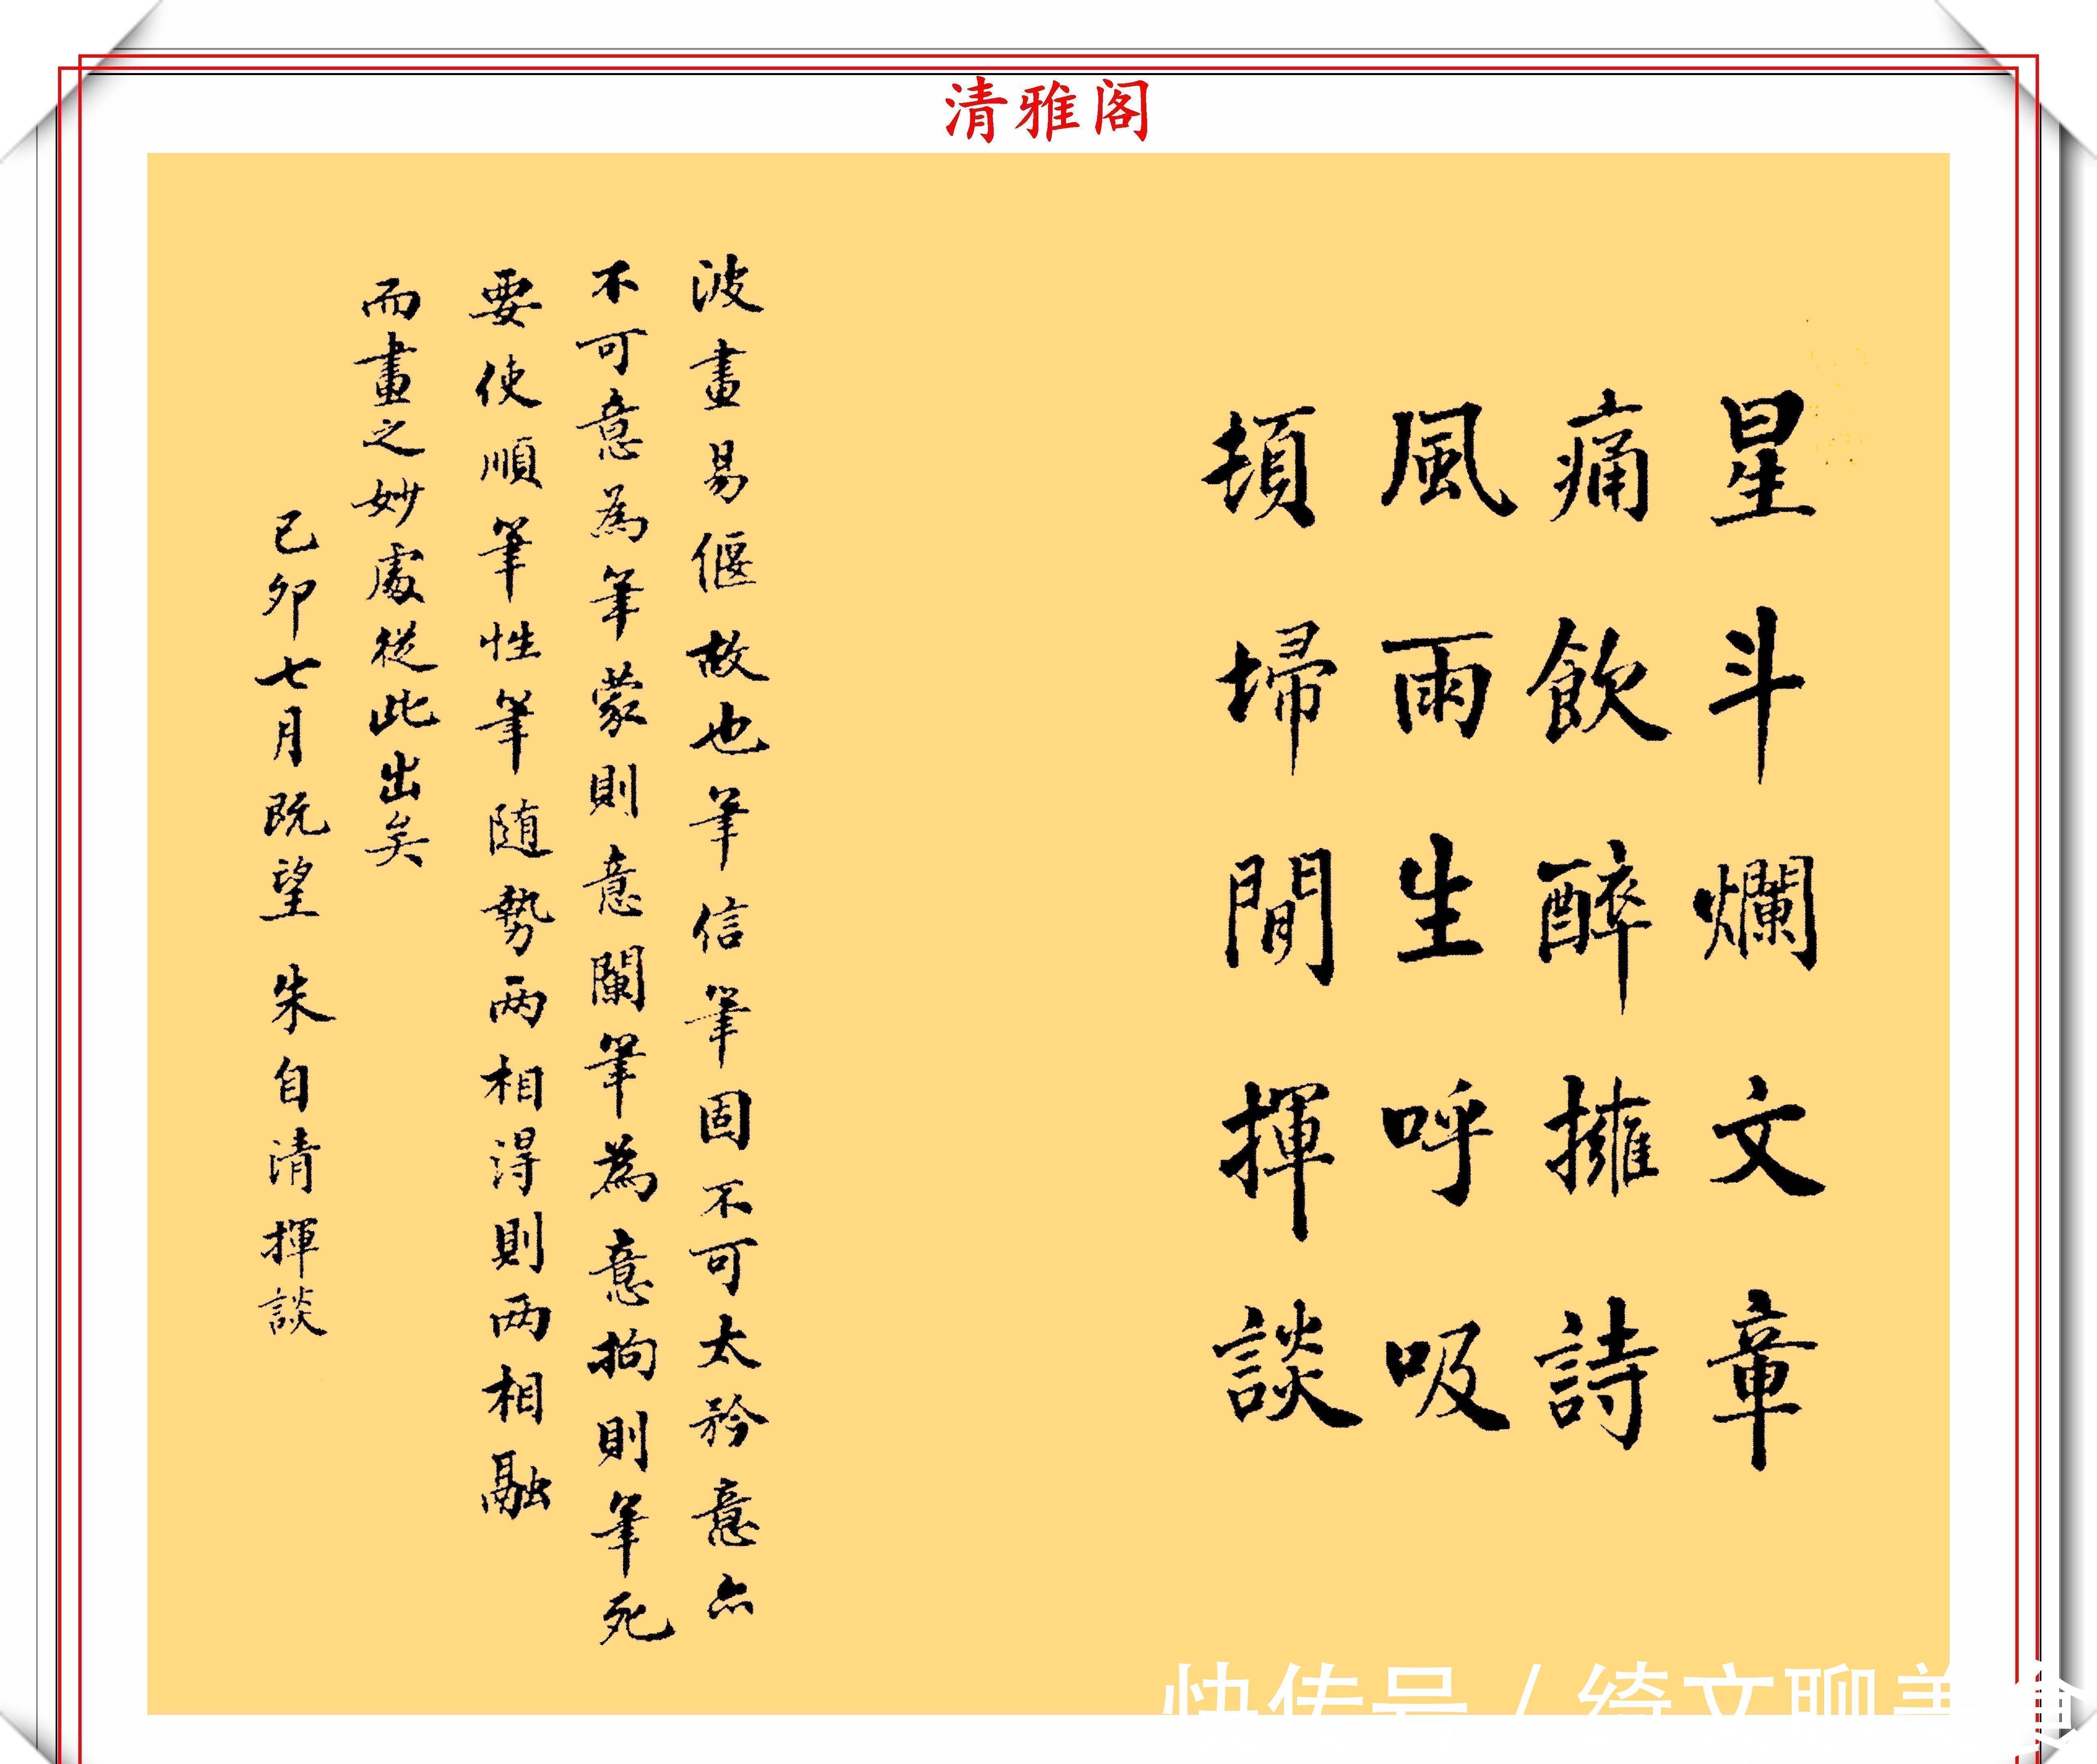 清雅阁
星斗爛文章
痛飲醉擁詩
風雨生呼吸
頓掃間揮談
波畫易偃故也筆信筆固不可太矜意亦
不可意為筆蒙則意闌筆為意拘則筆死
要使順筆性筆随勢两相得則两相融
而畫之妙處從此出矣
己卯七月既望 朱自清揮談
快传号 / 绮文聊美食